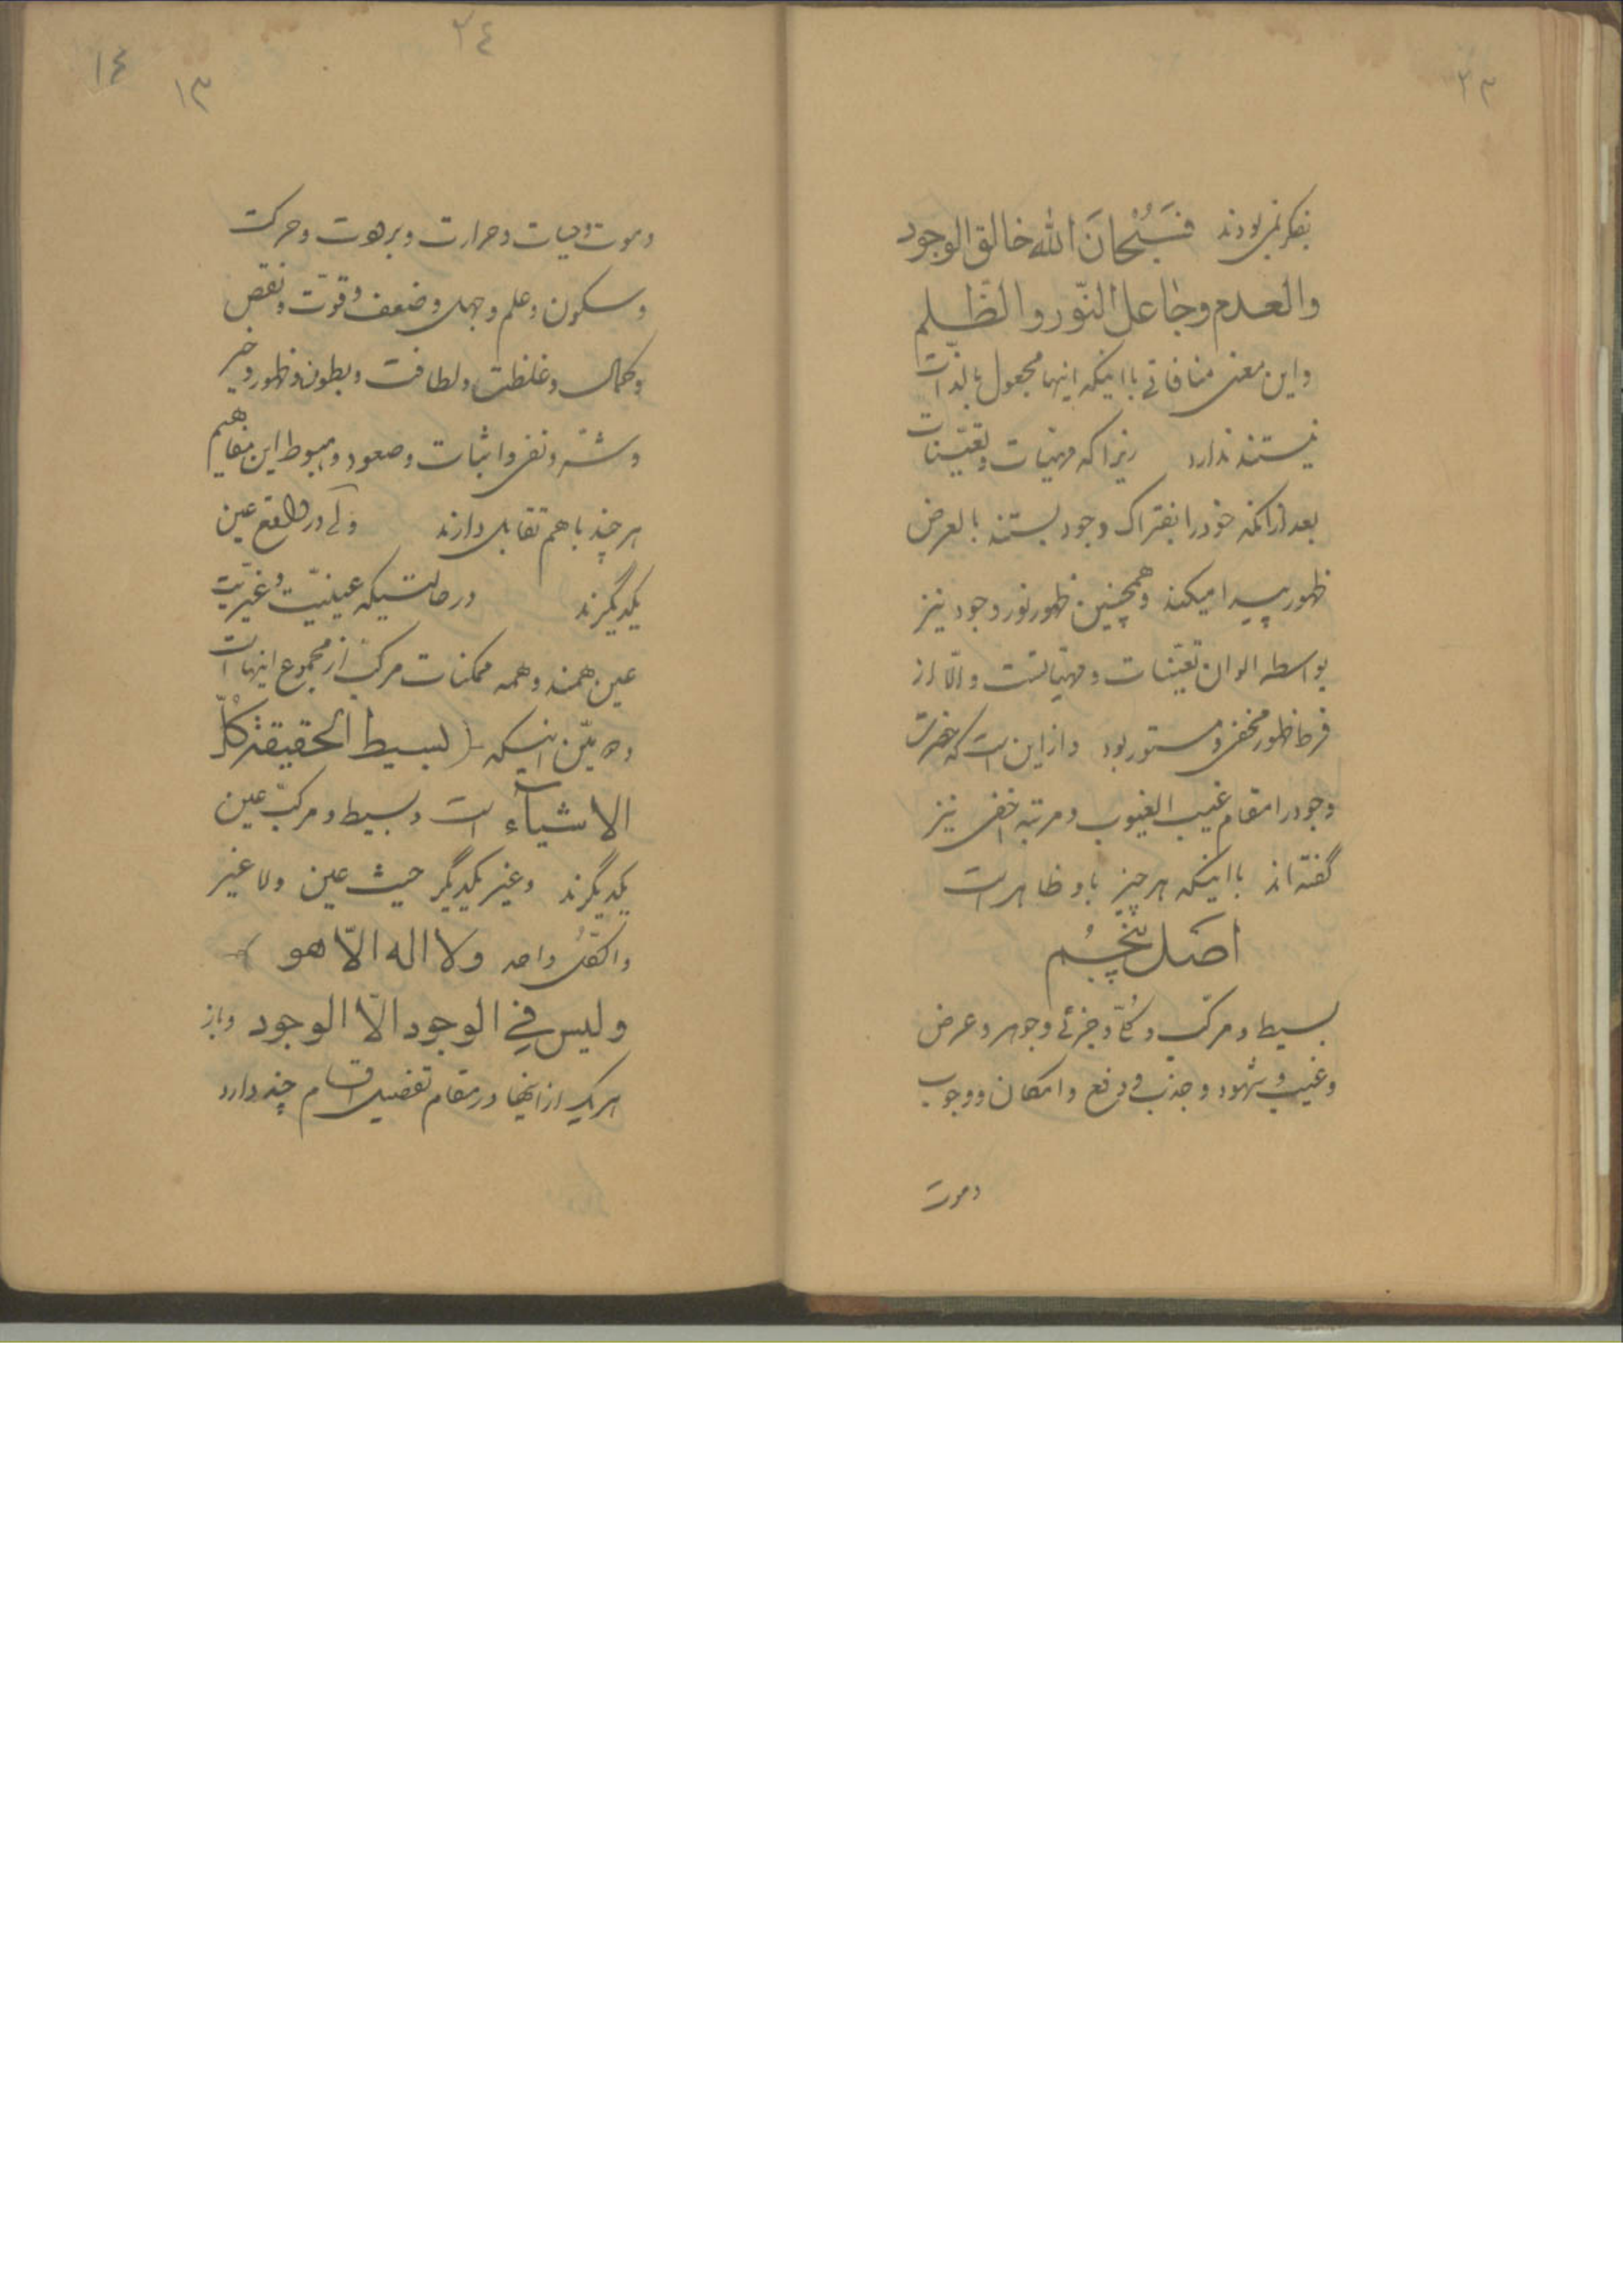 ۲۳
بفکر نمی بودند فَسُبْحانَ الله خالق الوجود
والعدم وجاعل النّور والظّلم
واین معنی منافاتی با اینکه اینها مجعول بالذات
نیستند ندارد زیرا که مهیات و تعیّنات
بعد از آنکه خود را بفتراک وجود بستند بالعرض
ظهور پیدا میکنند و همچنین ظهور نور وجود نیز
بواسطه الوان تعیّنات و مهیّاتست والّا از
فرط ظهور مخفی و مستور بود و از این است که حضرت
وجود را مقام غیب الغیوب و مرتبه اخفی نیز
گفته‌اند با اینکه هر چیز باو ظاهر است
اصل پنجُم
بسیط و مرکّب و کُلّی و جزئی و جوهر و عرض
و غیب و شهود و جذب و دفع و امکان و وجوب
وموت
۲٤
۱٤
۱۳
وموت و حیات و حرارت و برودت و حرکت
و سکون و علم و جهل و ضعف و قوّت و نقص
و کمال و غلظت و لطافت و بطون و ظهور و خیر
و شرّ و نفی و اثبات و صعود و هبوط این مفاهیم
هر چند با هم تقابل دارند ولی در واقع عین
یکدیگرند در حالتیکه عینیّت و غیریّت
عین همند و همه ممکنات مرکب از مجموع اینهاست
اینکه (بسیط الحقیقة کلّ
الاشیآء است و بسیط و مرکّب عین
یکدیگرند و غیر یکدیگر حیث عین ولا غیر
والکلّ واحد ولا اله الّا هو
ولیس فی الوجود الّا الوجود و باز
هر یک از اینها در مقام تفصیل اقسام چند دارد